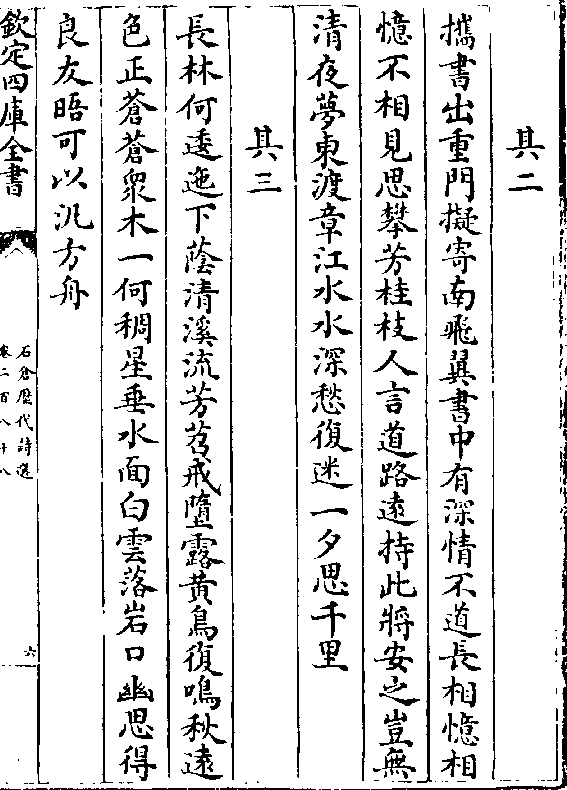 其二
攜書出重門擬寄南飛翼書中有深情不道長相憶相
憶不相見思攀芳桂枝人言道路遠持此將安之豈無
清夜夢東渡章江水水深愁復迷一夕思千里
其三
長林何逶迤下蔭清溪流芳苕戒墮露黄鳥復鳴秋遠
色正蒼蒼衆木一何稠星垂水面白雲落岩口幽思得
良友晤可以汎方舟
欽定四庫全書
石倉歷代詩選
卷二百八十八
六